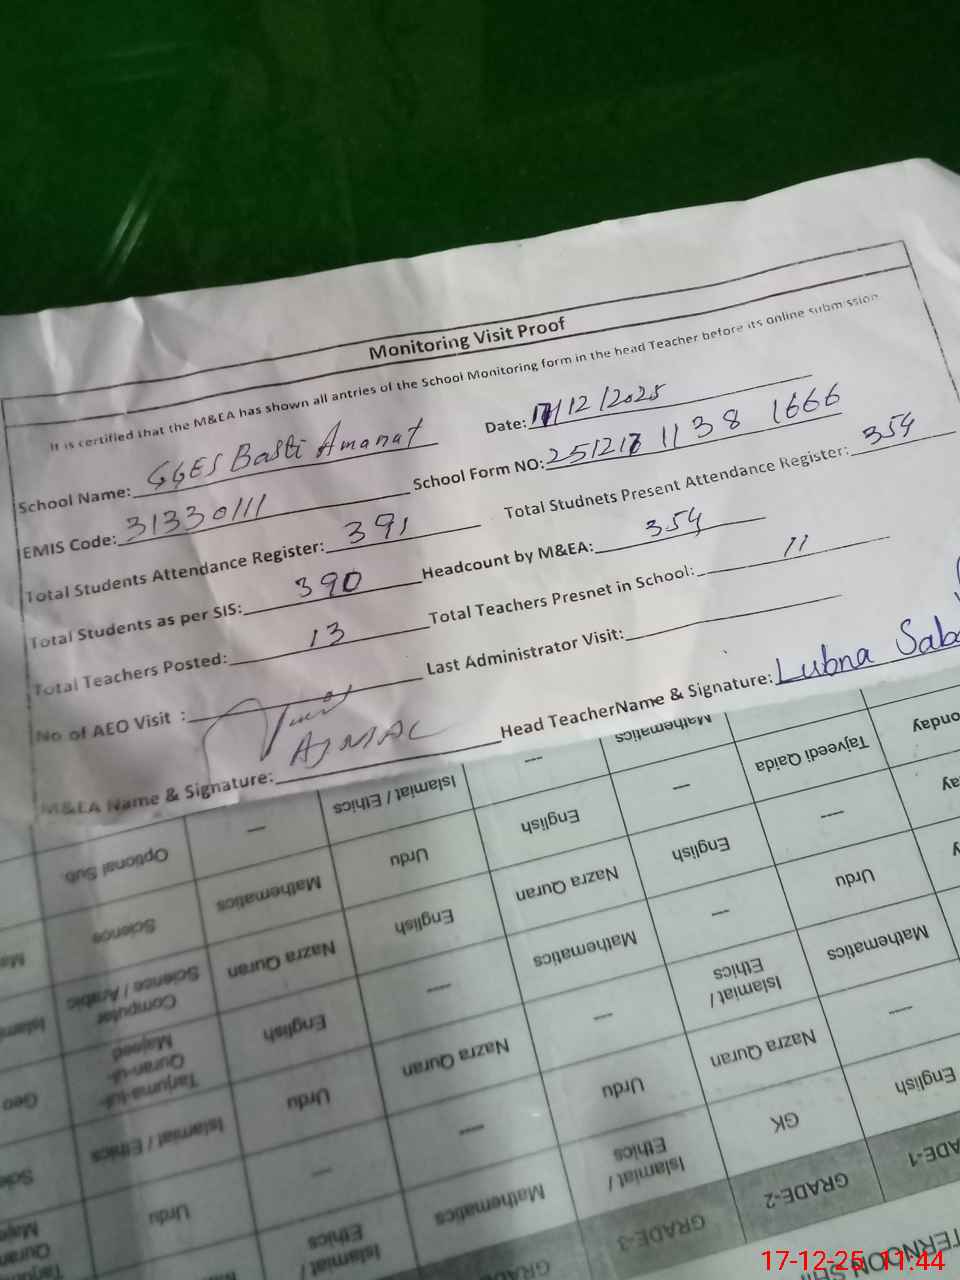 Monitoring Visit Proof
It is certified that the M&EA has shown all antries of the School Monitoring form in the head Teacher before its online submission
School Name: GGES Basti Amanat Date: 17/12/2025
EMIS Code: 31330111 School Form NO: 251217 1138 1666
Total Students Attendance Register: 391 Total Studnets Present Attendance Register: 354
Total Students as per SIS: 390 Headcount by M&EA: 354
Total Teachers Posted: 13 Total Teachers Presnet in School: 11
No of AEO Visit : Last Administrator Visit:
M&EA Name & Signature: AJMAL Head TeacherName & Signature: Lubna
GRADE-1
GRADE-2 GRADE-3
English GK Islamiat / Ethics Mathematics Islamiat / Ethics
— Nazra Quran Urdu — — Urdu
Mathematics Islamiat / Ethics — Nazra Quran Urdu Islamiat / Ethics
Urdu — Mathematics — English Tarjuma-tul-Quran-ul-Majeed
— English Nazra Quran English Nazra Quran Computer Science / Arabic
Tajveedi Qaida — English Urdu Mathematics Science
Mathematics — Islamiat / Ethics — Optional Sub.
17-12-25 11:44